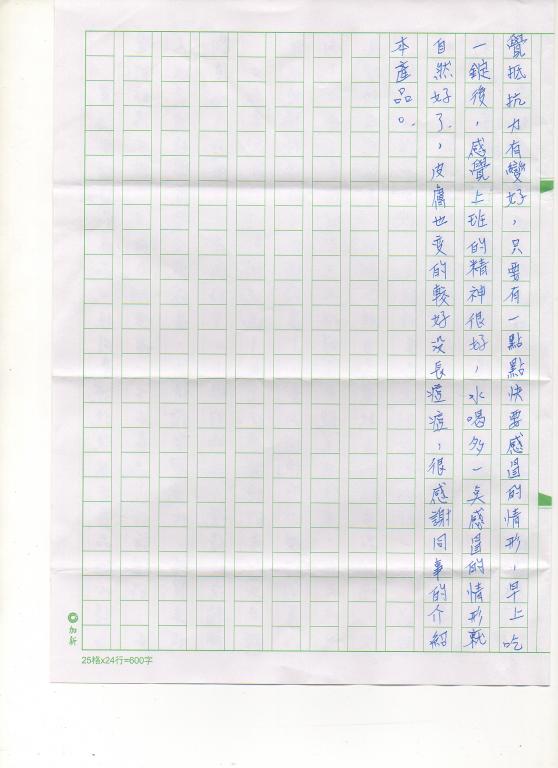 覺抵抗力有變好，只要有一點點快要感冒的情形，早上吃
一錠後，感覺上班的精神很好，水喝多一点感冒的情形就
自然好了，皮膚也变的較好沒長痘痘，很感謝同事的介紹
本產品。
加新
25格x24行=600字